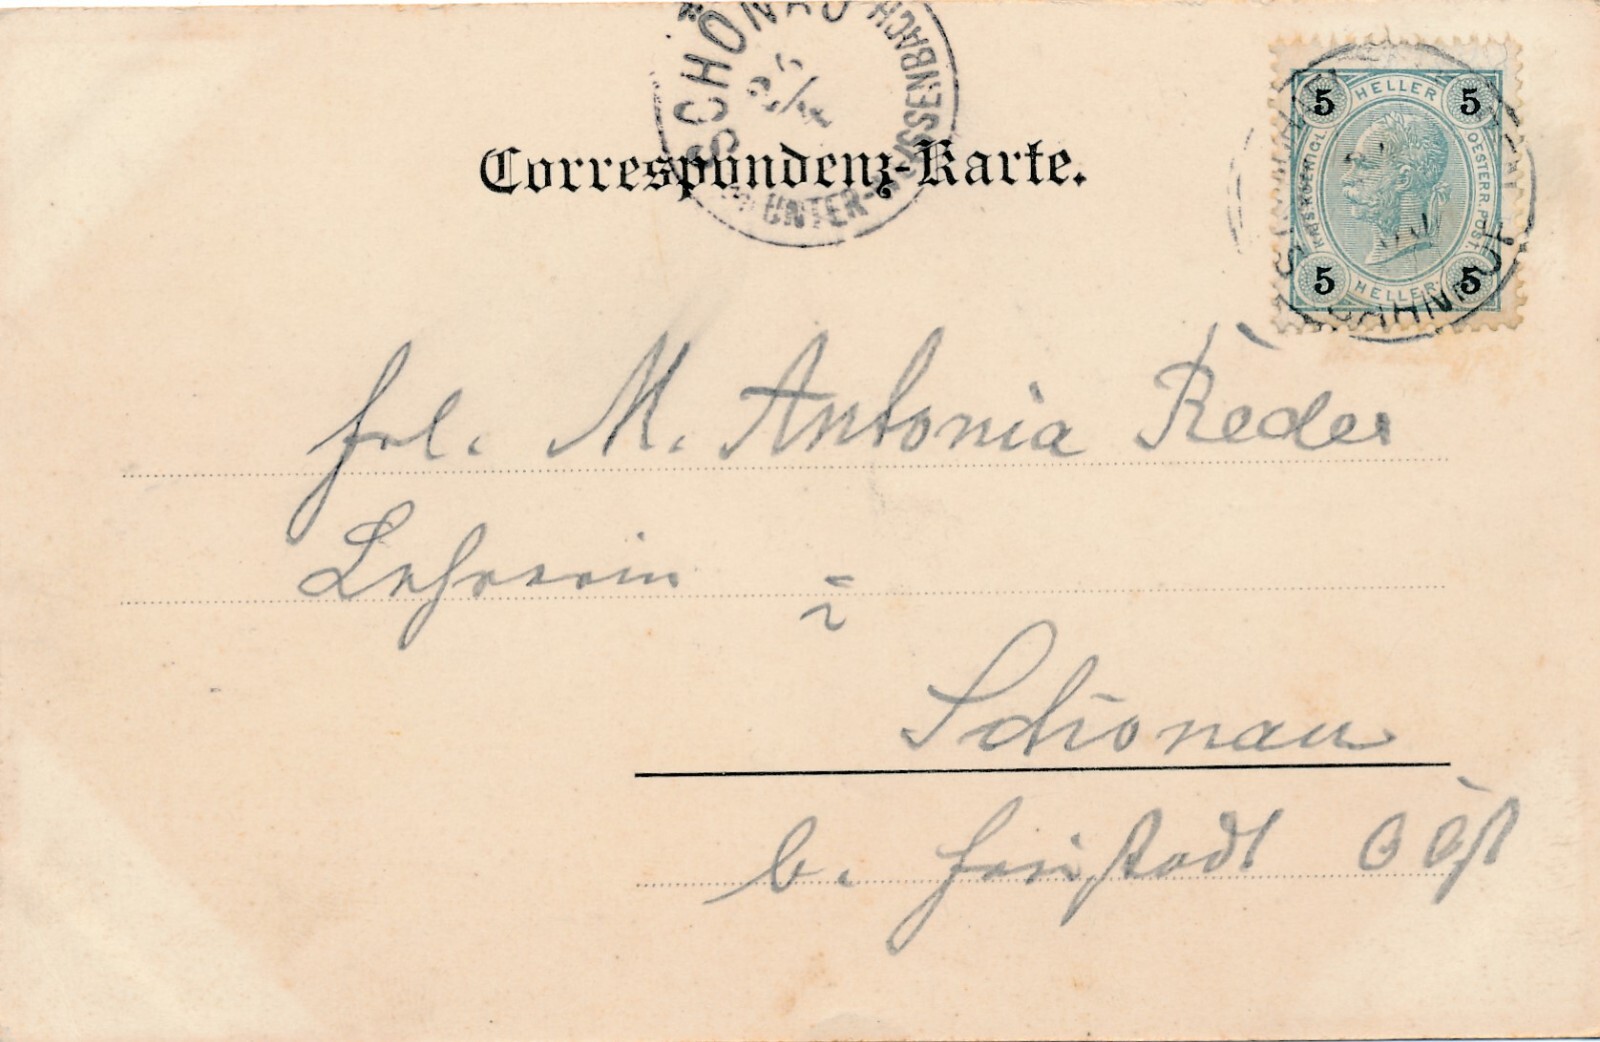 SCHÖNAU
UNTER-WEISSENBACH
Correspondenz-Karte.
5 HELLER 5
KAIS. KOENIGL. OESTERR. POST.
5 HELLER 5
BAHNHOF
Frl. M. Antonia Reder
Lehrerin
in
Schönau
b. Freistadt ObÖst